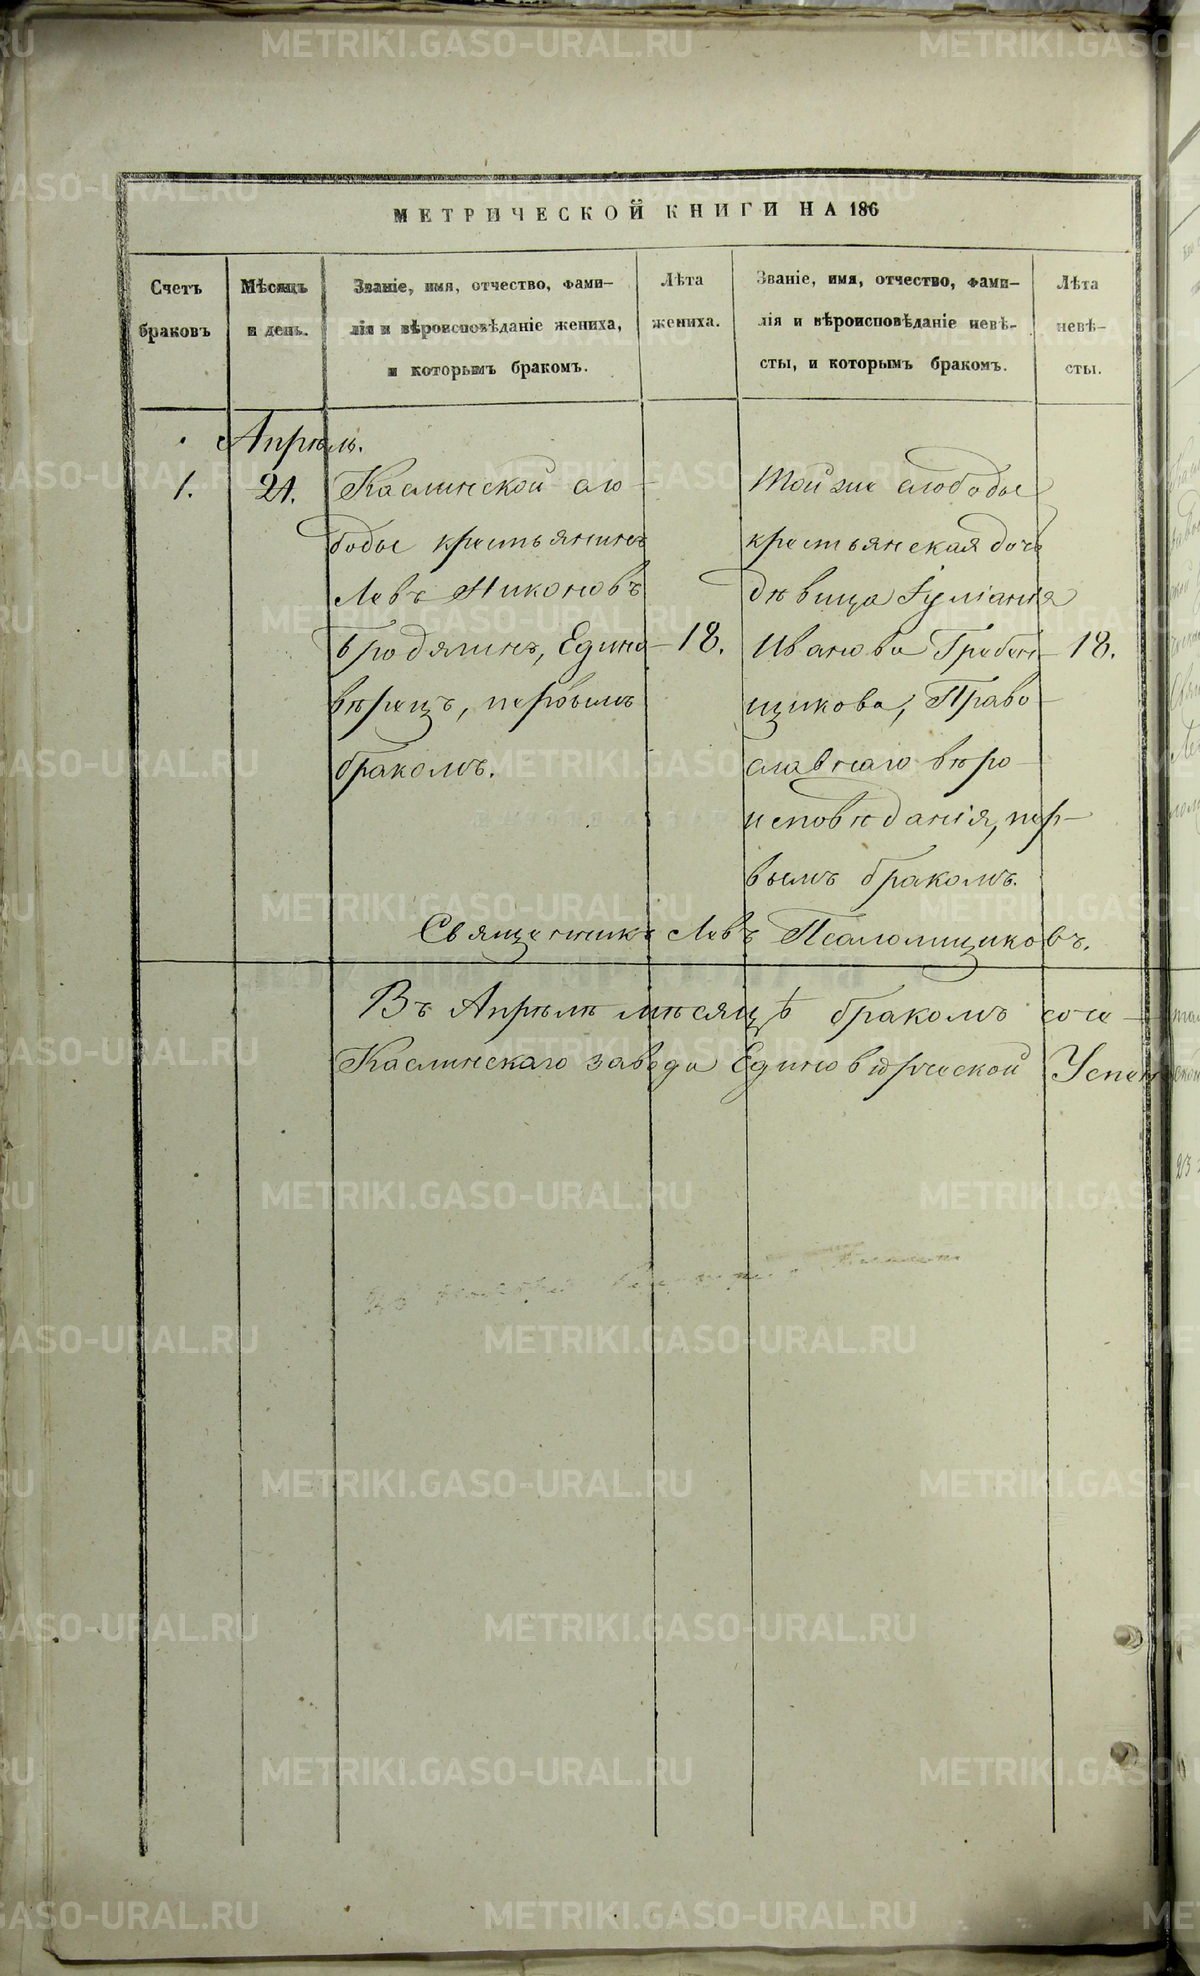 МЕТРИЧЕСКОЙ КНИГИ НА 186
Счетъ браковъ
Мѣсяцъ и день.
Званіе, имя, отчество, фами-
лія и вѣроисповѣданіе жениха,
и которымъ бракомъ.
Лѣта
жениха.
Званіе, имя, отчество, фами-
лія и вѣроисповѣданіе невѣ-
сты, и которымъ бракомъ.
Лѣта
невѣ-
сты.
Апрѣль.
1.
21.
Каслинской сло-
боды крестьянинъ
Левъ Никоновъ
Бродягинъ, Едино-
вѣрецъ, первымъ
бракомъ.
18.
Той же слободы
крестьянская дочь
дѣвица Іуліанія
Иванова Гребен-
щикова, Право-
славнаго вѣро-
исповѣданія, пер-
вымъ бракомъ.
18.
Священникъ Левъ Псаломщиковъ.
Въ Апрѣлѣ мѣсяцѣ бракомъ соче-
Каслинскаго завода Единовѣрческой Успен
METRIKI.GASO-URAL.RU